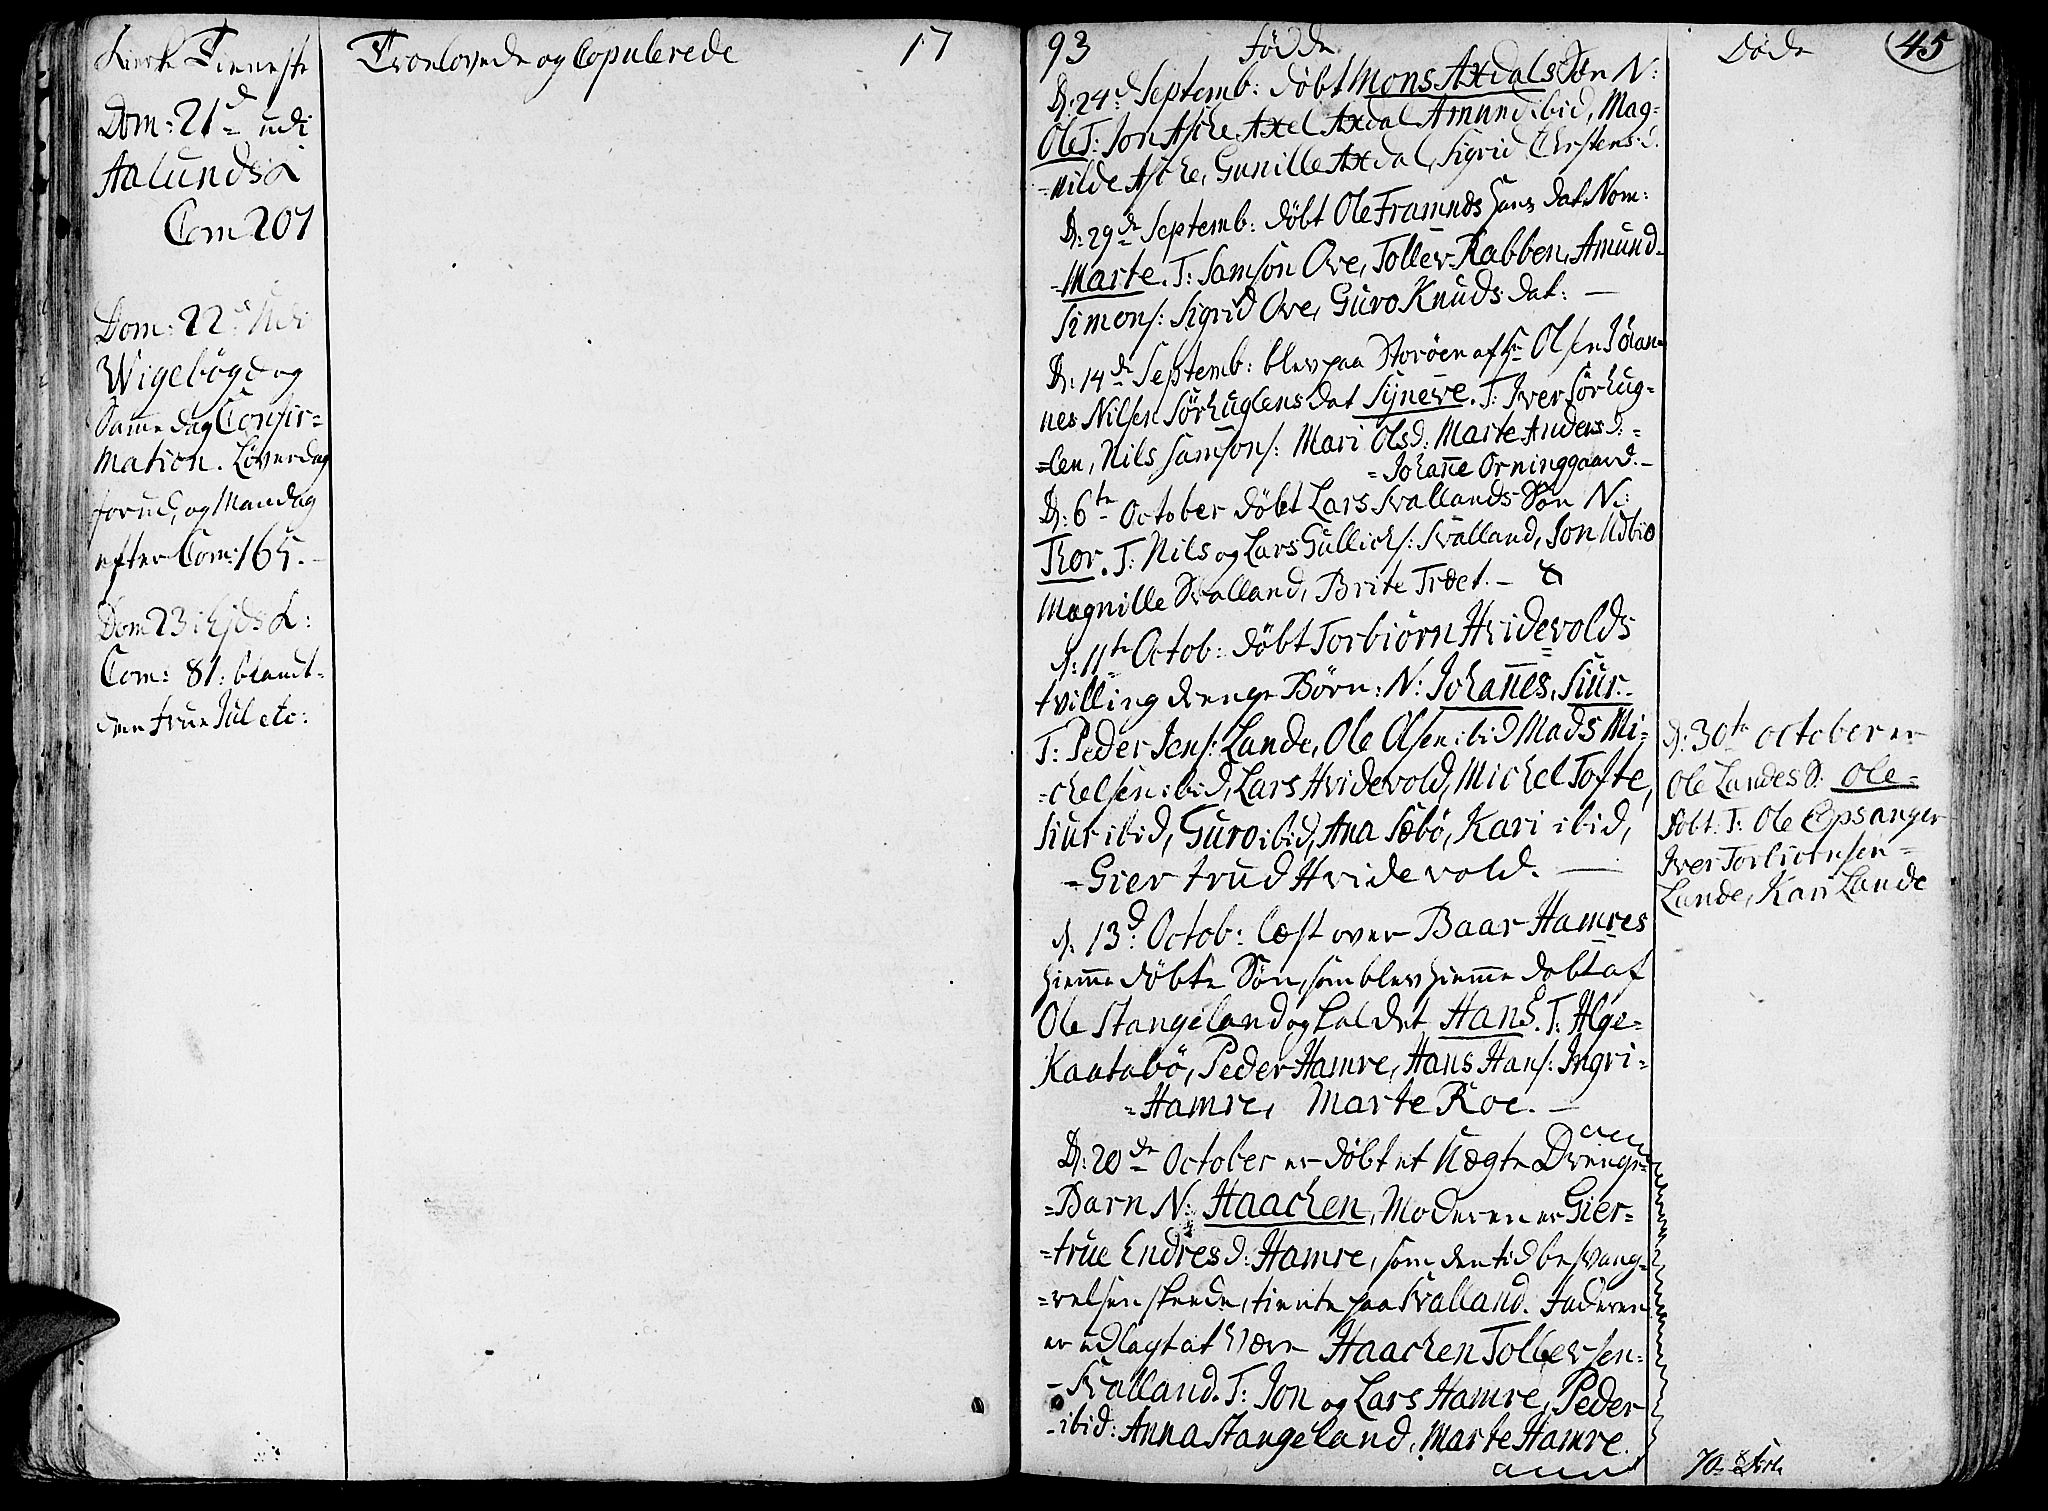 Kirke Tieneste
Dom: 21d udi
Aalunds L
Com 207
Dom: 22d Udi
Wigebögd og
Samme dag Confir=
mation. Löverdag
forud, og Mandag
efter Com: 165.
Dom 23 i Ejds L:
Com: 81: blandt
dem frue Juletc:
Troelovede og Copulerede
17
93
Födde
D: 24d Septemb: döbt Mons Axdals Sön N:
Ole T: Jon Aske Axel Axdal Amund ibid, Mag=
=nilde Aske, Gunille Axdal, Sigrid Chrstensd.
D: 29de Septemb: döbt Ole Framnds Hans dat Nom:
Marte. T: Samson Ove, Tollev Rabben, Amund
Simons: Sigrid Ove, Guro Knuds dat: —
D: 14de Septemb: blev paa Storöen af Hr Olsen Johan=
nes Nilsen Sörhuglens Dat Syneve. T: Iver Sörhug=
=len, Nils Samsons: Mari Olsd: Marte Andersd:=
=Johanne Orninggaard.—
D: 6te October döbt Lars Svallands Sön N:
Thor. T: Nils og Lars Gullichs: Svalland, Jon Udbio
Magnille Svalland, Brite Træet. —
d: 11te Octob: döbt Torbiörn Hvidevolds
tvilling drenge Börn: N: Johannes, Siur.
T: Peder Jens: Lande, Ole Olsen ibid Mads Mi=
=chelsen ibid, Lars Hvidevold, Michel Tofte,
Siur ibid, Guro ibid, Ana Sæbö, Kari ibid,
=Giertrud Hvidevold. —
d: 13d: Octob: læst over Baar Hamres
hiemme döbte Sön, som blev hiemme döbt af
Ole Stangeland og kaldet Hans. T: Alge=
Kaatabö, Peder Hamre, Hans Hans: Ingri=
=Hamre, Marte Roe. —
D: 20de October er döbt et Uægte Drenge=
=Barn N: Haachen, Moderen er Gier=
=true Endresd: Hamre, som den tid besvang=
=relsen skeede, tiente paa Svalland. Faderen
er udlagt at være Haachen Tollevsen=
=Svalland. T: Jon og Lars Hamre, Peder
=ibid: Anna Stangeland, Marte Hamre.
Döde
45
d: 30te October er
Ole Landes S. Ole=
döbt. T: Ole Opsanger
Iver Torbiörnsen=
Lande, Kari Lande